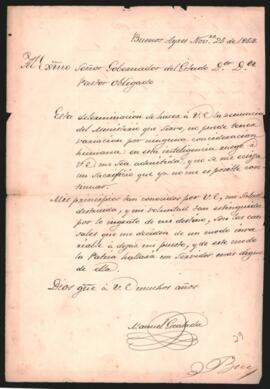 Buenos Ayres Nov.re 25 de 1853
Exmo Señor Gobernador del Estado D.or D.n
Pastor Obligado
Esta determinacion de hacer á V. E. la renuncia
del Ministerio que sirvo, no puede tener
variacion por ninguna consideracion
humana: en esta inteligencia ruego á
V. E. me sea admitida, y no se me exija
un Sacrificio que ya no me es posible
continuar.
Mis principios son conocidos por V. E., mi Salud
destruida, y mi voluntad
por lo ingrato de mi destino, son las cau
sales que me deciden de un modo inva
riable á dejar mi puesto, y de este modo
la Patria hallará un Servidor mas digno
de ella.
Dios gũe á V. E. muchos años
Manuel
29